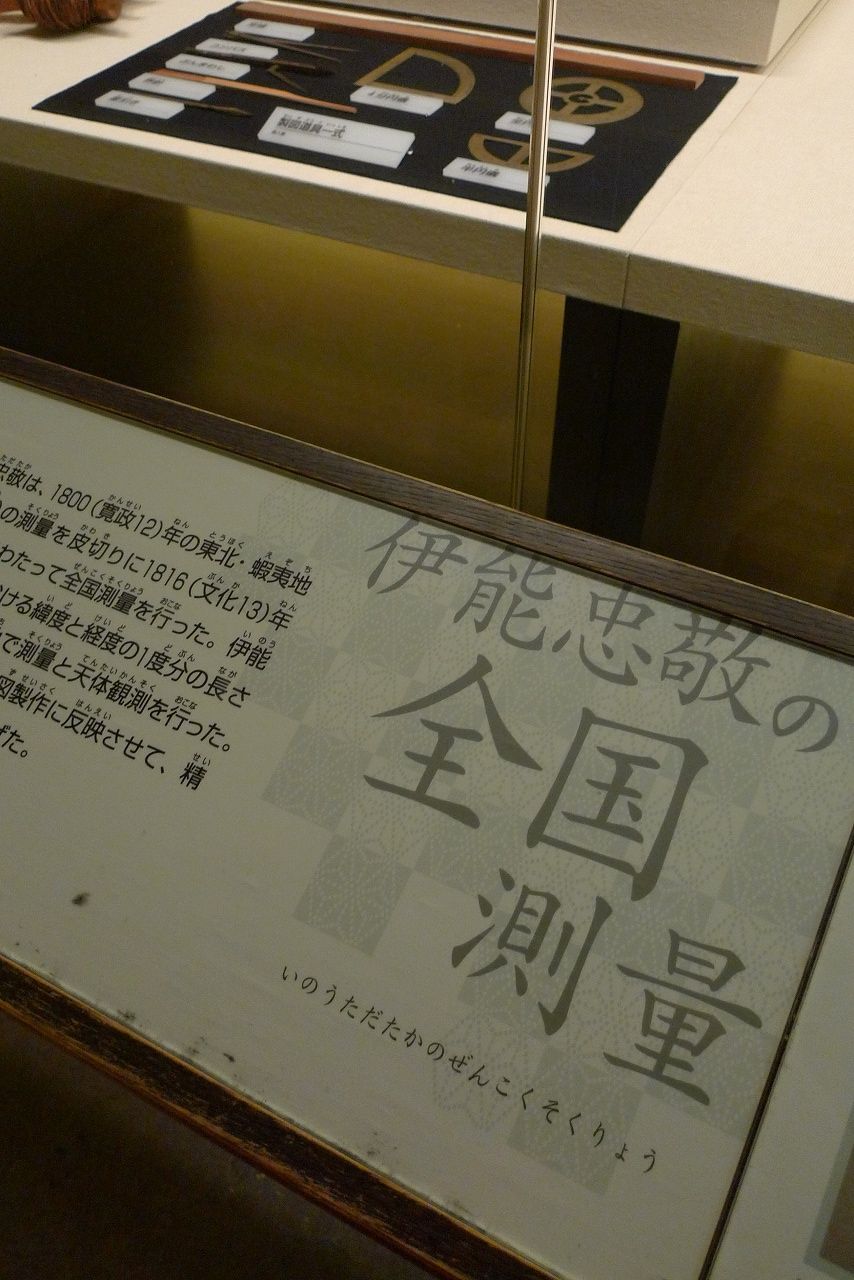 製図道具一式
伊能忠敬の
全国
測量
いのうただたかのぜんこくそくりょう
忠敬は、1800（寛政12）年の東北・蝦夷地
の測量を皮切りに1816（文化13）年
わたって全国測量を行った。伊能
ける緯度と経度の1度分の長さ
で測量と天体観測を行った。
図製作に反映させて、精
げた。